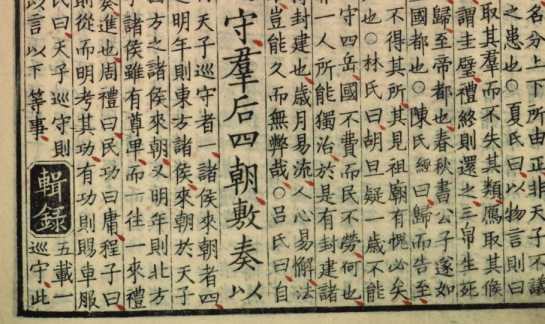 名分上下所由正非天子不議
之患也○夏氏曰以物言則曰
取其羣而不失其類鴈取其候
謂圭璧禮終則還之三帛生死
歸至帝都也春秋書公子遂如
國都也○陳氏經曰歸而告至
不得其所其見祖廟有愧必矣
也○林氏曰胡旦疑一歲不能
守四岳國不費而民不勞何也
一人所能獨治於是有封建諸
得封建也歲月易流人心易懈法
豈能久而無弊哉○呂氏曰自
守羣后四朝敷奏以
天子巡守者一諸侯來朝者四
之明年則東方諸侯來朝於天子
方之諸侯來朝又明年則北方
諸侯雖有尊卑而一往一來禮
奏進也周禮曰民功曰庸程子曰
則從而明考其功有功則賜車服
氏曰天子巡守則
以言以下等事
輯錄
五載一
巡守此